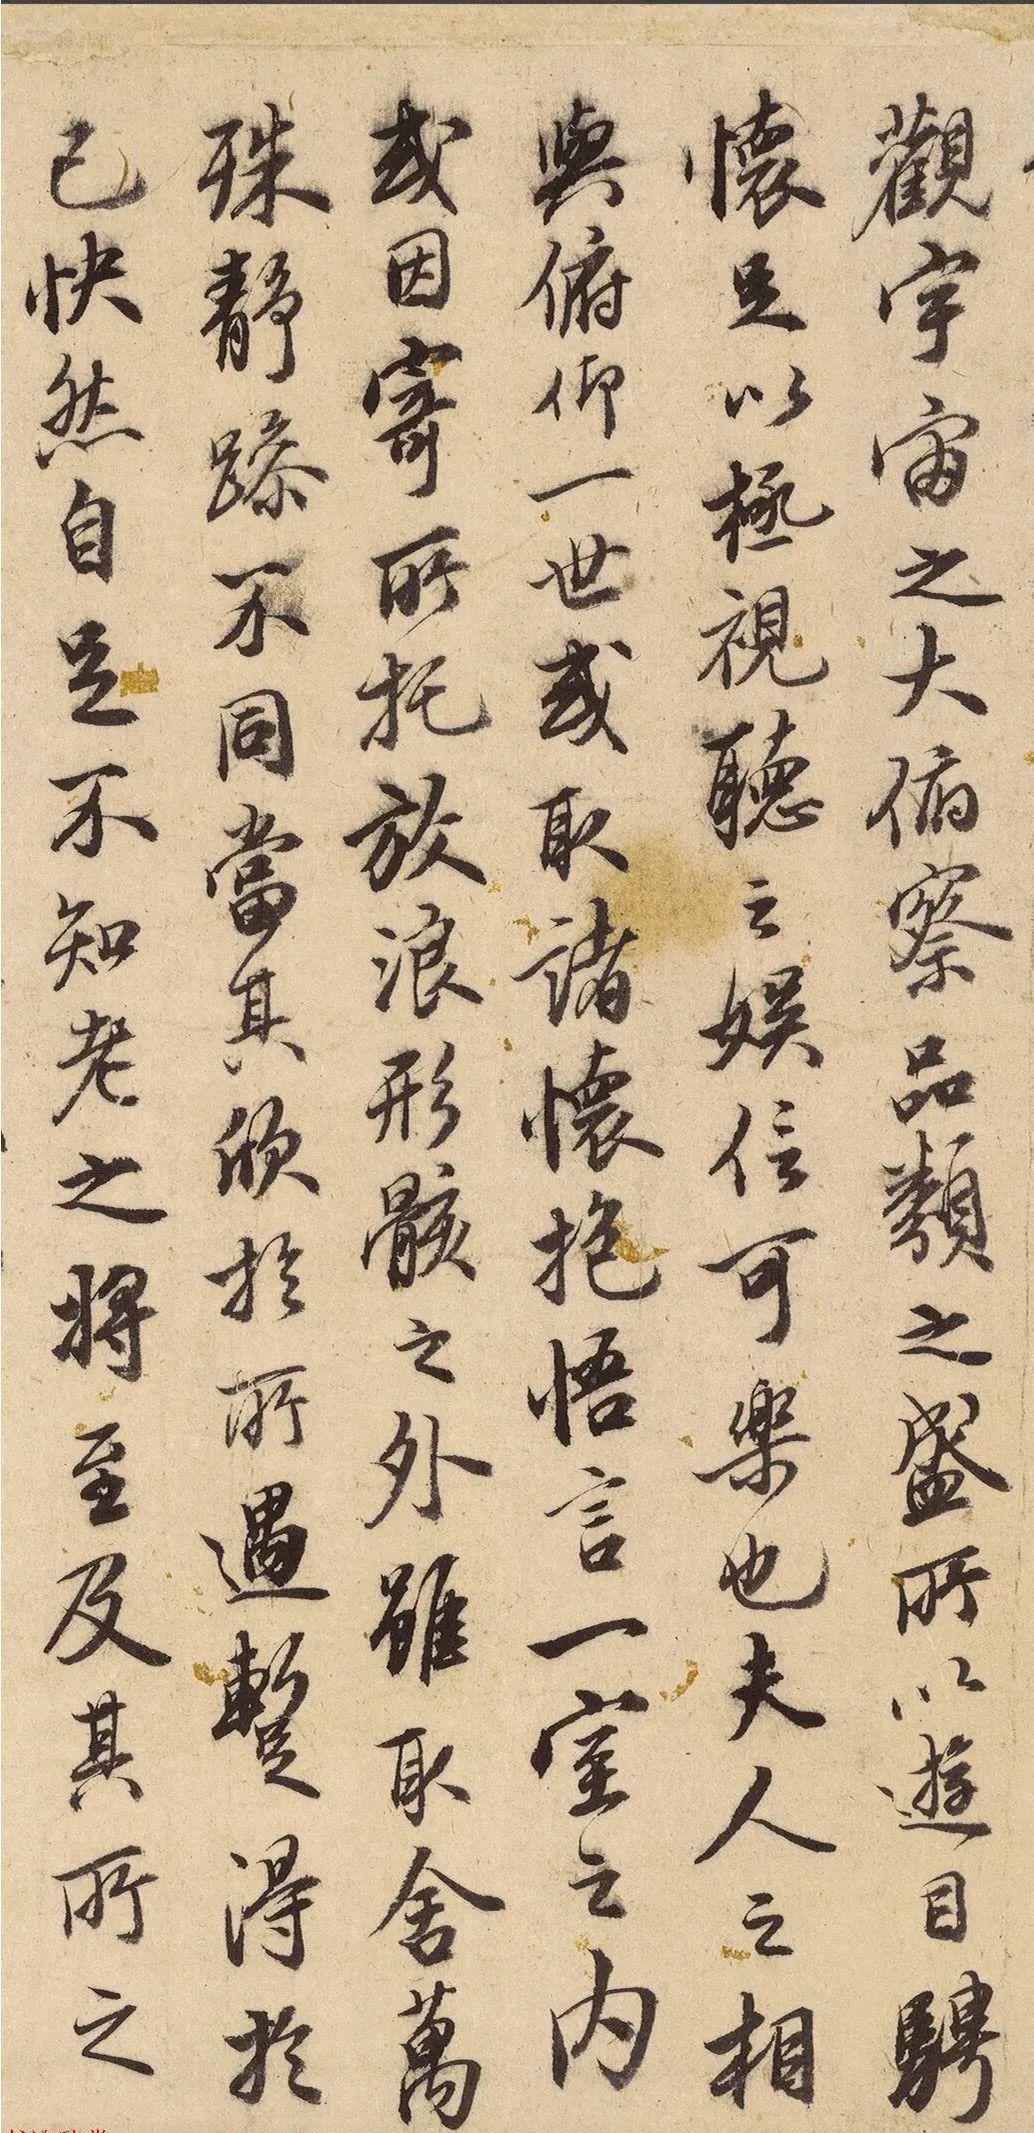 觀宇宙之大俯察品類之盛所以遊目騁
懷足以極視聽之娛信可樂也夫人之相
與俯仰一世或取諸懷抱悟言一室之內
或因寄所托放浪形骸之外雖取舍萬
殊靜躁不同當其欣於所遇暫得於
己快然自足不知老之將至及其所之